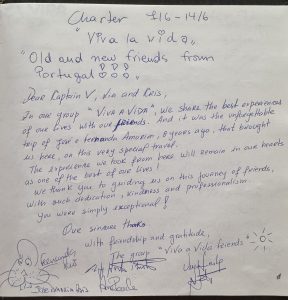 Charter 7/6 - 14/6
"Viva la vida"
"Old and new friends from
Portugal!!!"
Dear Captain V, Nia and Cris,
In our group "VIVA A VIDA", we share the best experiences
of our lives with our friends. And it was the unforgettable
trip of José e Fernando Amorim, 8 years ago, that brought
us here, on this very special travel.
The experience we took from here will remain in our hearts
as one of the best of our lives!
We thank you to guiding us on this journey of friends,
with such dedication, kindness and professionalism.
You were simply exceptional!
Our sincere thanks
with friendship and gratitude,
The group
"Viva a Vida friends"